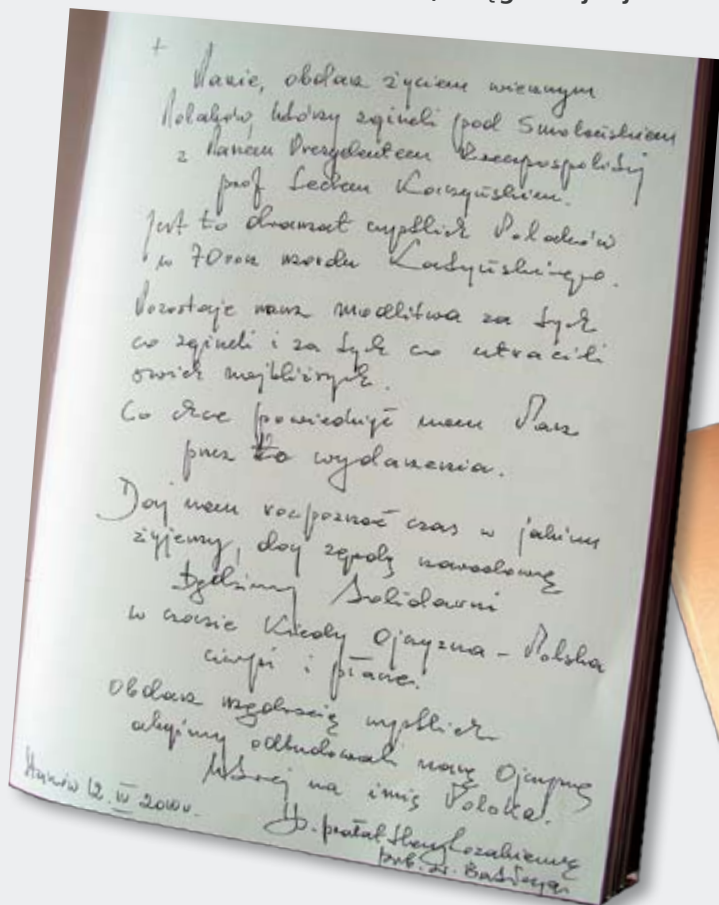 +
Panie, obdarz życiem wiecznym
Polaków, którzy zginęli pod Smoleńskiem
z Panem Prezydentem Rzeczpospolitej
prof Lechem Kaczyńskim.
Jest to dramat wszystkich Polaków
w 70 rocz mordu Katyńskiego.
Pozostaje nam modlitwa za tych
co zginęli i za tych co utracili
swoich najbliższych.
Co chce powiedzieć nam Pan
przez to wydarzenia.
Daj nam rozpoznać czas w jakim
żyjemy, daj zgodę narodową
Bądźmy Solidarni
w czasie kiedy Ojczyzna - Polska
cierpi i płacze.
Obdarz mądrością wszystkich
abyśmy odbudowali naszą Ojczyznę
której na imię Polska.
12. IV 2010 r.
Ks. prałat
prob. św.